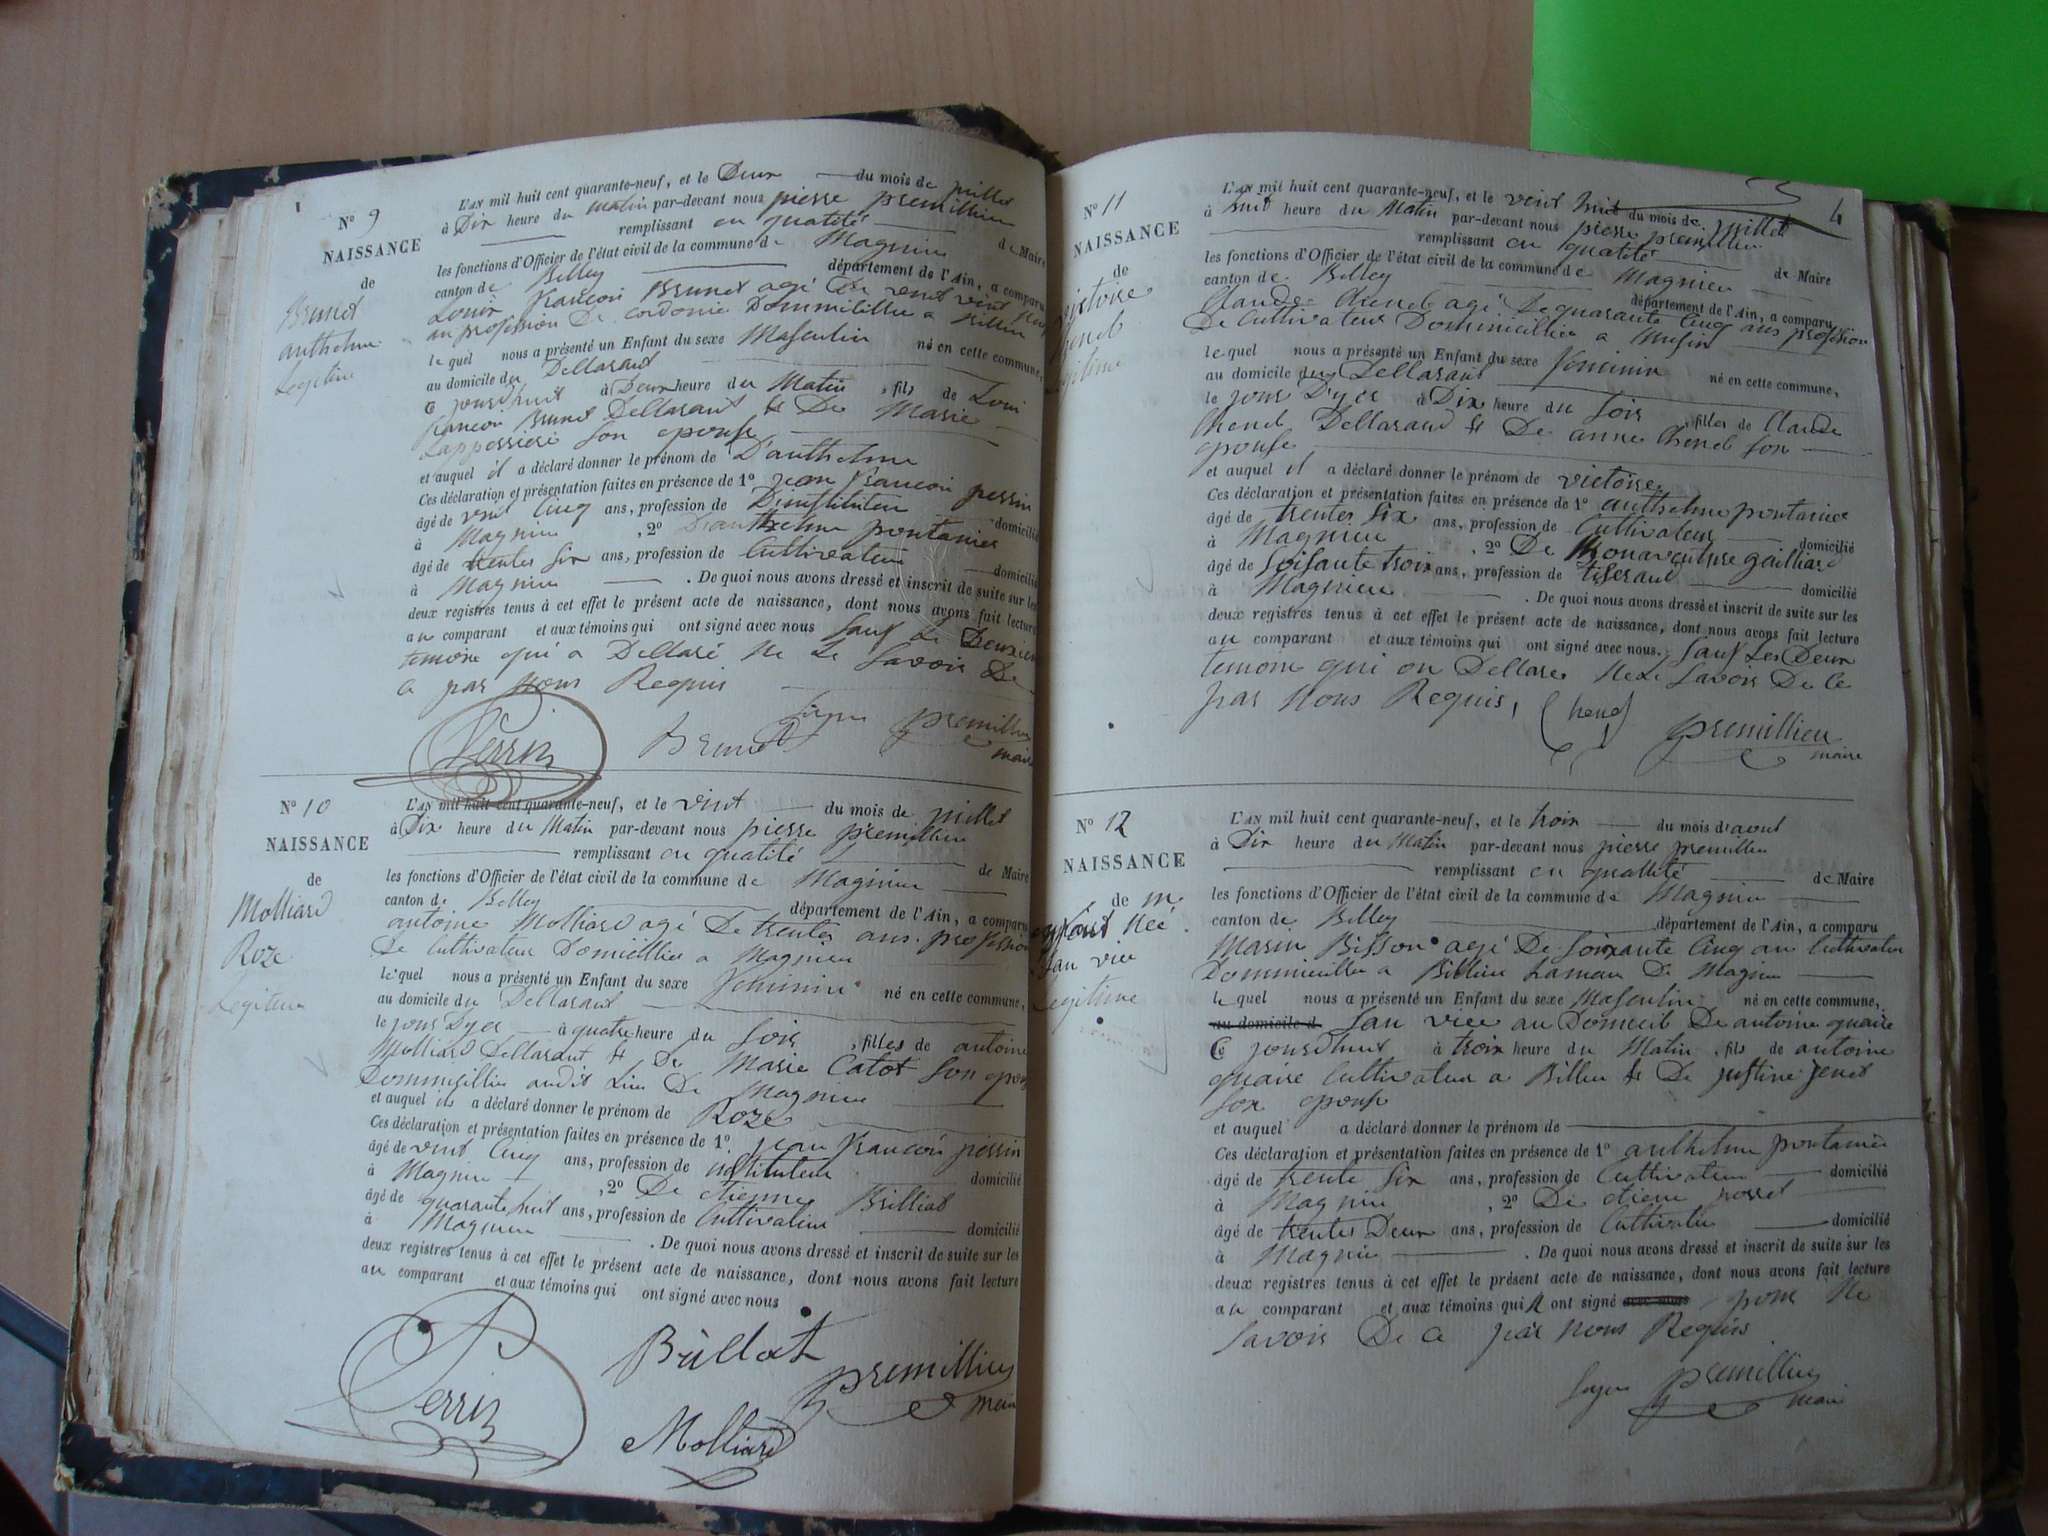 N° 9
NAISSANCE
de
Brunet
anthelme
Legitime
L'AN mil huit cent quarante-neuf, et le Deux du mois de juillet
à Dix heure du matin par-devant nous pierre premillieu
remplissant en quatité de Maire
les fonctions d'Officier de l'état civil de la commune de Magnieu
canton de Belley département de l'Ain, a comparu
Louis françois Brunet agé de vent vint
au profession De cordonie Dommicillie a Billieu
le quel nous a présenté un Enfant du sexe Masculin né en cette commune,
au domicile du Dellarant
Ce jourdhuit à Deux heure du Matin, fils de Loui
françoi Brunet Dellarant & De Marie
Lapperriere Son epouse
et auquel il a déclaré donner le prénom de D'anthelme
Ces déclaration et présentation faites en présence de 1° jean françoi perrin
âgé de vent cinq ans, profession de D'instituteur domicilié
à Magnieu, 2° D'anthelme pontanier
âgé de trentes six ans, profession de Cultivateur domicilié
à Magnieu. De quoi nous avons dressé et inscrit de suite sur les
deux registres tenus à cet effet le présent acte de naissance, dont nous avons fait lecture
au comparant et aux témoins qui ont signé avec nous Sauf Le Deuxiem
temoin qui a Dellaré Ne Le Savoir De
Ce par Nous Requis
Perrin Brunet premillieu
maire
N° 10
NAISSANCE
de
Molliard
Roze
Legitime
L'AN mil huit cent quarante-neuf, et le vint du mois de juillet
à Dix heure du Matin par-devant nous pierre premillieu
remplissant en quatité de Maire
les fonctions d'Officier de l'état civil de la commune de Magnieu
canton de Belley département de l'Ain, a comparu
antoine Molliard agé De trentes ans profession
De Cultivateur Domicillier a Magnieu
le quel nous a présenté un Enfant du sexe feminin né en cette commune,
au domicile du Dellarant
le jour Dyer à quatre heure du Soir, filles de antoine
Molliard Dellarant & De Marie Catot Son epouse
Dommicillier audit Lieu De Magnieu
et auquel il a déclaré donner le prénom de Roze
Ces déclaration et présentation faites en présence de 1°. jean françoi perrin
âgé de vint cinq ans, profession de instituteur domicilié
à Magnieu, 2° De etienne Brilliat
âgé de quarante huit ans, profession de Cultivateur domicilié
à Magnieu. De quoi nous avons dressé et inscrit de suite sur les
deux registres tenus à cet effet le présent acte de naissance, dont nous avons fait lecture
au comparant et aux témoins qui ont signé avec nous
Perrin Brillat premillieu
maire
Molliard
4
N° 11
NAISSANCE
de
victoire
Chenel
Legitime
L'AN mil huit cent quarante-neuf, et le vent huit du mois de juillet
à huit heure du Matin par-devant nous pierre premillieu
remplissant en quatité de Maire
les fonctions d'Officier de l'état civil de la commune de Magnieu
canton de Belley département de l'Ain, a comparu
Claude Chenel agé De quarante Cinq ans profession
De Cultivateur Dommicillier a Musin
le quel nous a présenté un Enfant du sexe feminin né en cette commune,
au domicile du Dellarant
le jour D'yer à Dix heure du Soir, filles de Claude
Chenel Dellarand & De anne Chenel Son
epouse
et auquel il a déclaré donner le prénom de victoire
Ces déclaration et présentation faites en présence de 1° anthelme pontanier
âgé de trentes six ans, profession de Cultivateur domicilié
à Magnieu, 2° De Bonaventure gailliard
âgé de Soisante trois ans, profession de tiserand domicilié
à Magnieu. De quoi nous avons dressé et inscrit de suite sur les
deux registres tenus à cet effet le présent acte de naissance, dont nous avons fait lecture
au comparant et aux témoins qui ont signé avec nous. Sauf Les Deux
temoin qui on Dellare Ne Le Savoir De Ce
par Nous Requis, Chenel premillieu
maire
N° 12
NAISSANCE
de m.
enfant Neé
San vie
Legitime
L'AN mil huit cent quarante-neuf, et le trois du mois d'aout
à Dix heure du Matin par-devant nous pierre premillieu
remplissant en quallité de Maire
les fonctions d'Officier de l'état civil de la commune de Magnieu
canton de Belley département de l'Ain, a comparu
Marin Bisson agé De Soixante Cinq an Cultivateur
Dommicillier a Billieu hameau De Magnieu
le quel nous a présenté un Enfant du sexe Masculin né en cette commune,
au domicile d San viee au Domicil De antoine quaire
Ce jourdhuit à trois heure du Matin, fils de antoine
quaire Cultivateur a Billieu & De justine jenet
Son epouse
et auquel a déclaré donner le prénom de
Ces déclaration et présentation faites en présence de 1° anthelme pontanier
âgé de trente six ans, profession de Cultivateur domicilié
à Magnieu, 2° De etiene
âgé de trentes Deux ans, profession de Cultivateur domicilié
à Magnieu. De quoi nous avons dressé et inscrit de suite sur les
deux registres tenus à cet effet le présent acte de naissance, dont nous avons fait lecture
au comparant et aux témoins qui n ont signé avec nous pour Ne
Savoir De Ce par Nous Requis
premillieu
maire